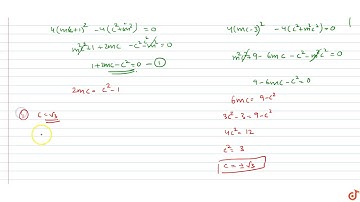 4(mc+1)² - 4(c²+m²) = 0
m²c²+1+2mc - c² - m²c² = 0
1+2mc-c²=0 - ①
2mc = c²-1
① c = √3
4(mc-3)² - 4(c²+m²c²)
m²c²+9-6mc-c²-m²c²=0
9-6mc-c²=0
6mc = 9-c²
3c²-3 = 9-c²
4c² = 12
c² = 3
c = ±√3